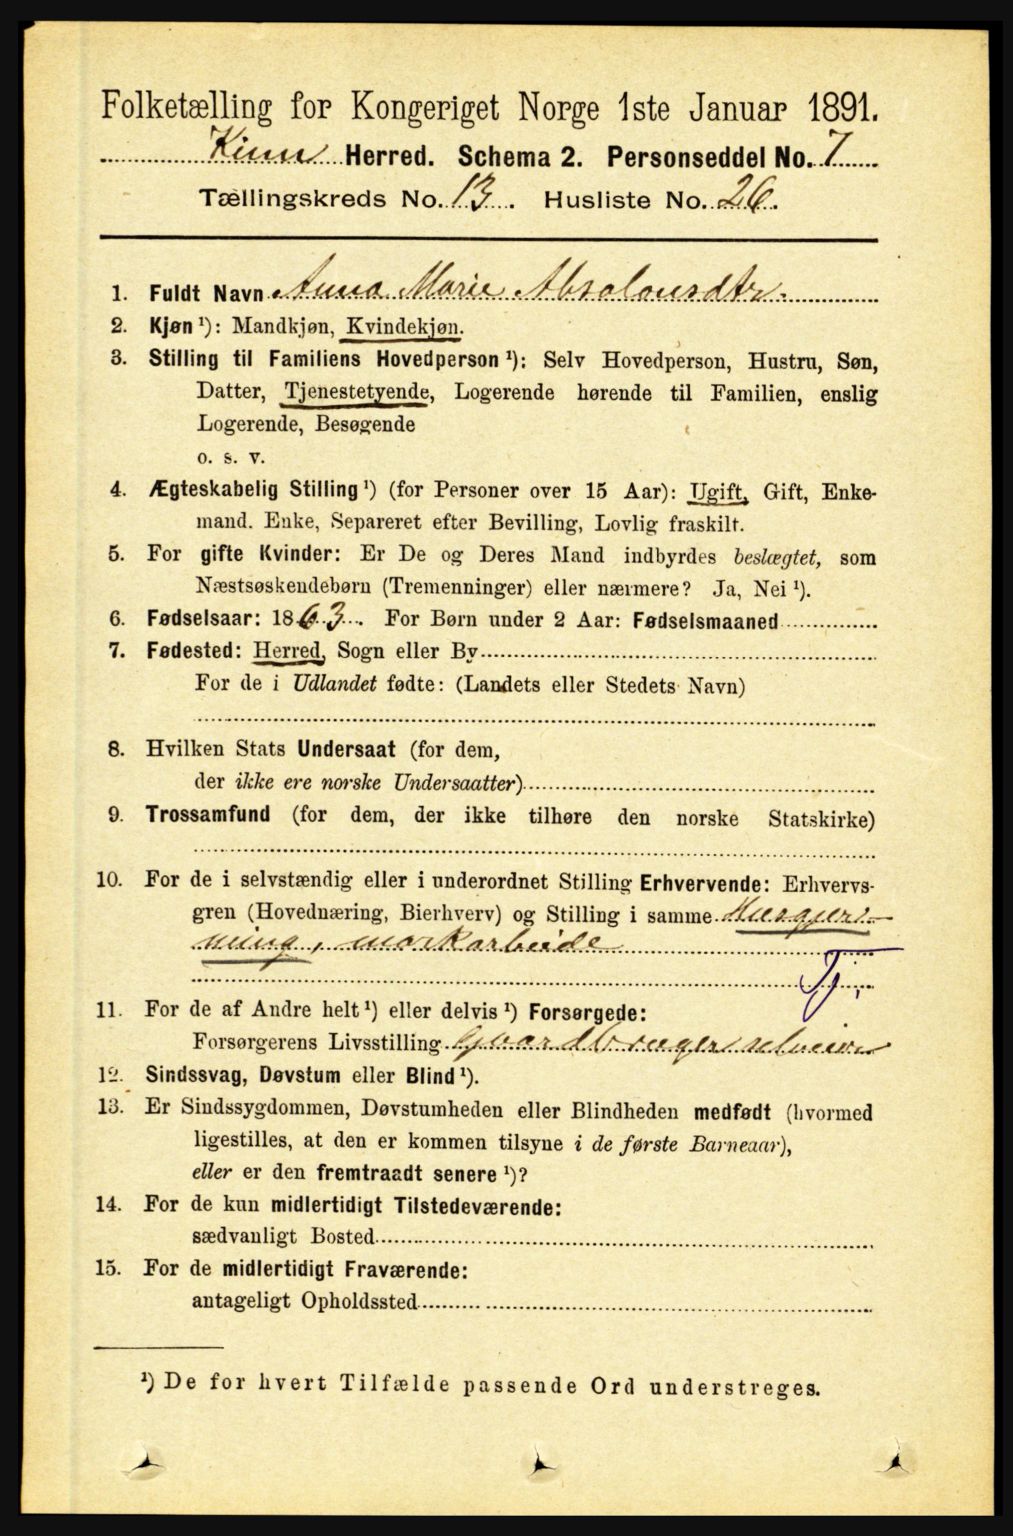 Folketælling for Kongeriget Norge 1ste Januar 1891.
Kinn Herred. Schema 2. Personseddel No. 7
Tællingskreds No. 13. Husliste No. 26.
1. Fuldt Navn Anna Marie Absalonsdtr.
2. Kjøn ¹): Mandkjøn, Kvindekjøn.
3. Stilling til Familiens Hovedperson ¹): Selv Hovedperson, Hustru, Søn,
Datter, Tjenestetyende, Logerende hørende til Familien, enslig
Logerende, Besøgende
o. s. v.
4. Ægteskabelig Stilling ¹) (for Personer over 15 Aar): Ugift, Gift, Enke-
mand. Enke, Separeret efter Bevilling, Lovlig fraskilt.
5. For gifte Kvinder: Er De og Deres Mand indbyrdes beslægtet, som
Næstsøskendebørn (Tremenninger) eller nærmere? Ja, Nei ¹).
6. Fødselsaar: 1863. For Børn under 2 Aar: Fødselsmaaned
7. Fødested: Herred, Sogn eller By
For de i Udlandet fødte: (Landets eller Stedets Navn)
8. Hvilken Stats Undersaat (for dem,
der ikke ere norske Undersaatter)
9. Trossamfund (for dem, der ikke tilhøre den norske Statskirke)
10. For de i selvstændig eller i underordnet Stilling Erhvervende: Erhvervs-
gren (Hovednæring, Bierhverv) og Stilling i samme Husgjer-
ning, markarbeide
Tj.
11. For de af Andre helt ¹) eller delvis ¹) Forsørgede:
Forsørgerens Livsstilling Gaardbruger selveier
12. Sindssvag, Døvstum eller Blind ¹).
13. Er Sindssygdommen, Døvstumheden eller Blindheden medfødt (hvormed
ligestilles, at den er kommen tilsyne i de første Barneaar),
eller er den fremtraadt senere ¹)?
14. For de kun midlertidigt Tilstedeværende:
sædvanligt Bosted
15. For de midlertidigt Fraværende:
antageligt Opholdssted
¹) De for hvert Tilfælde passende Ord understreges.